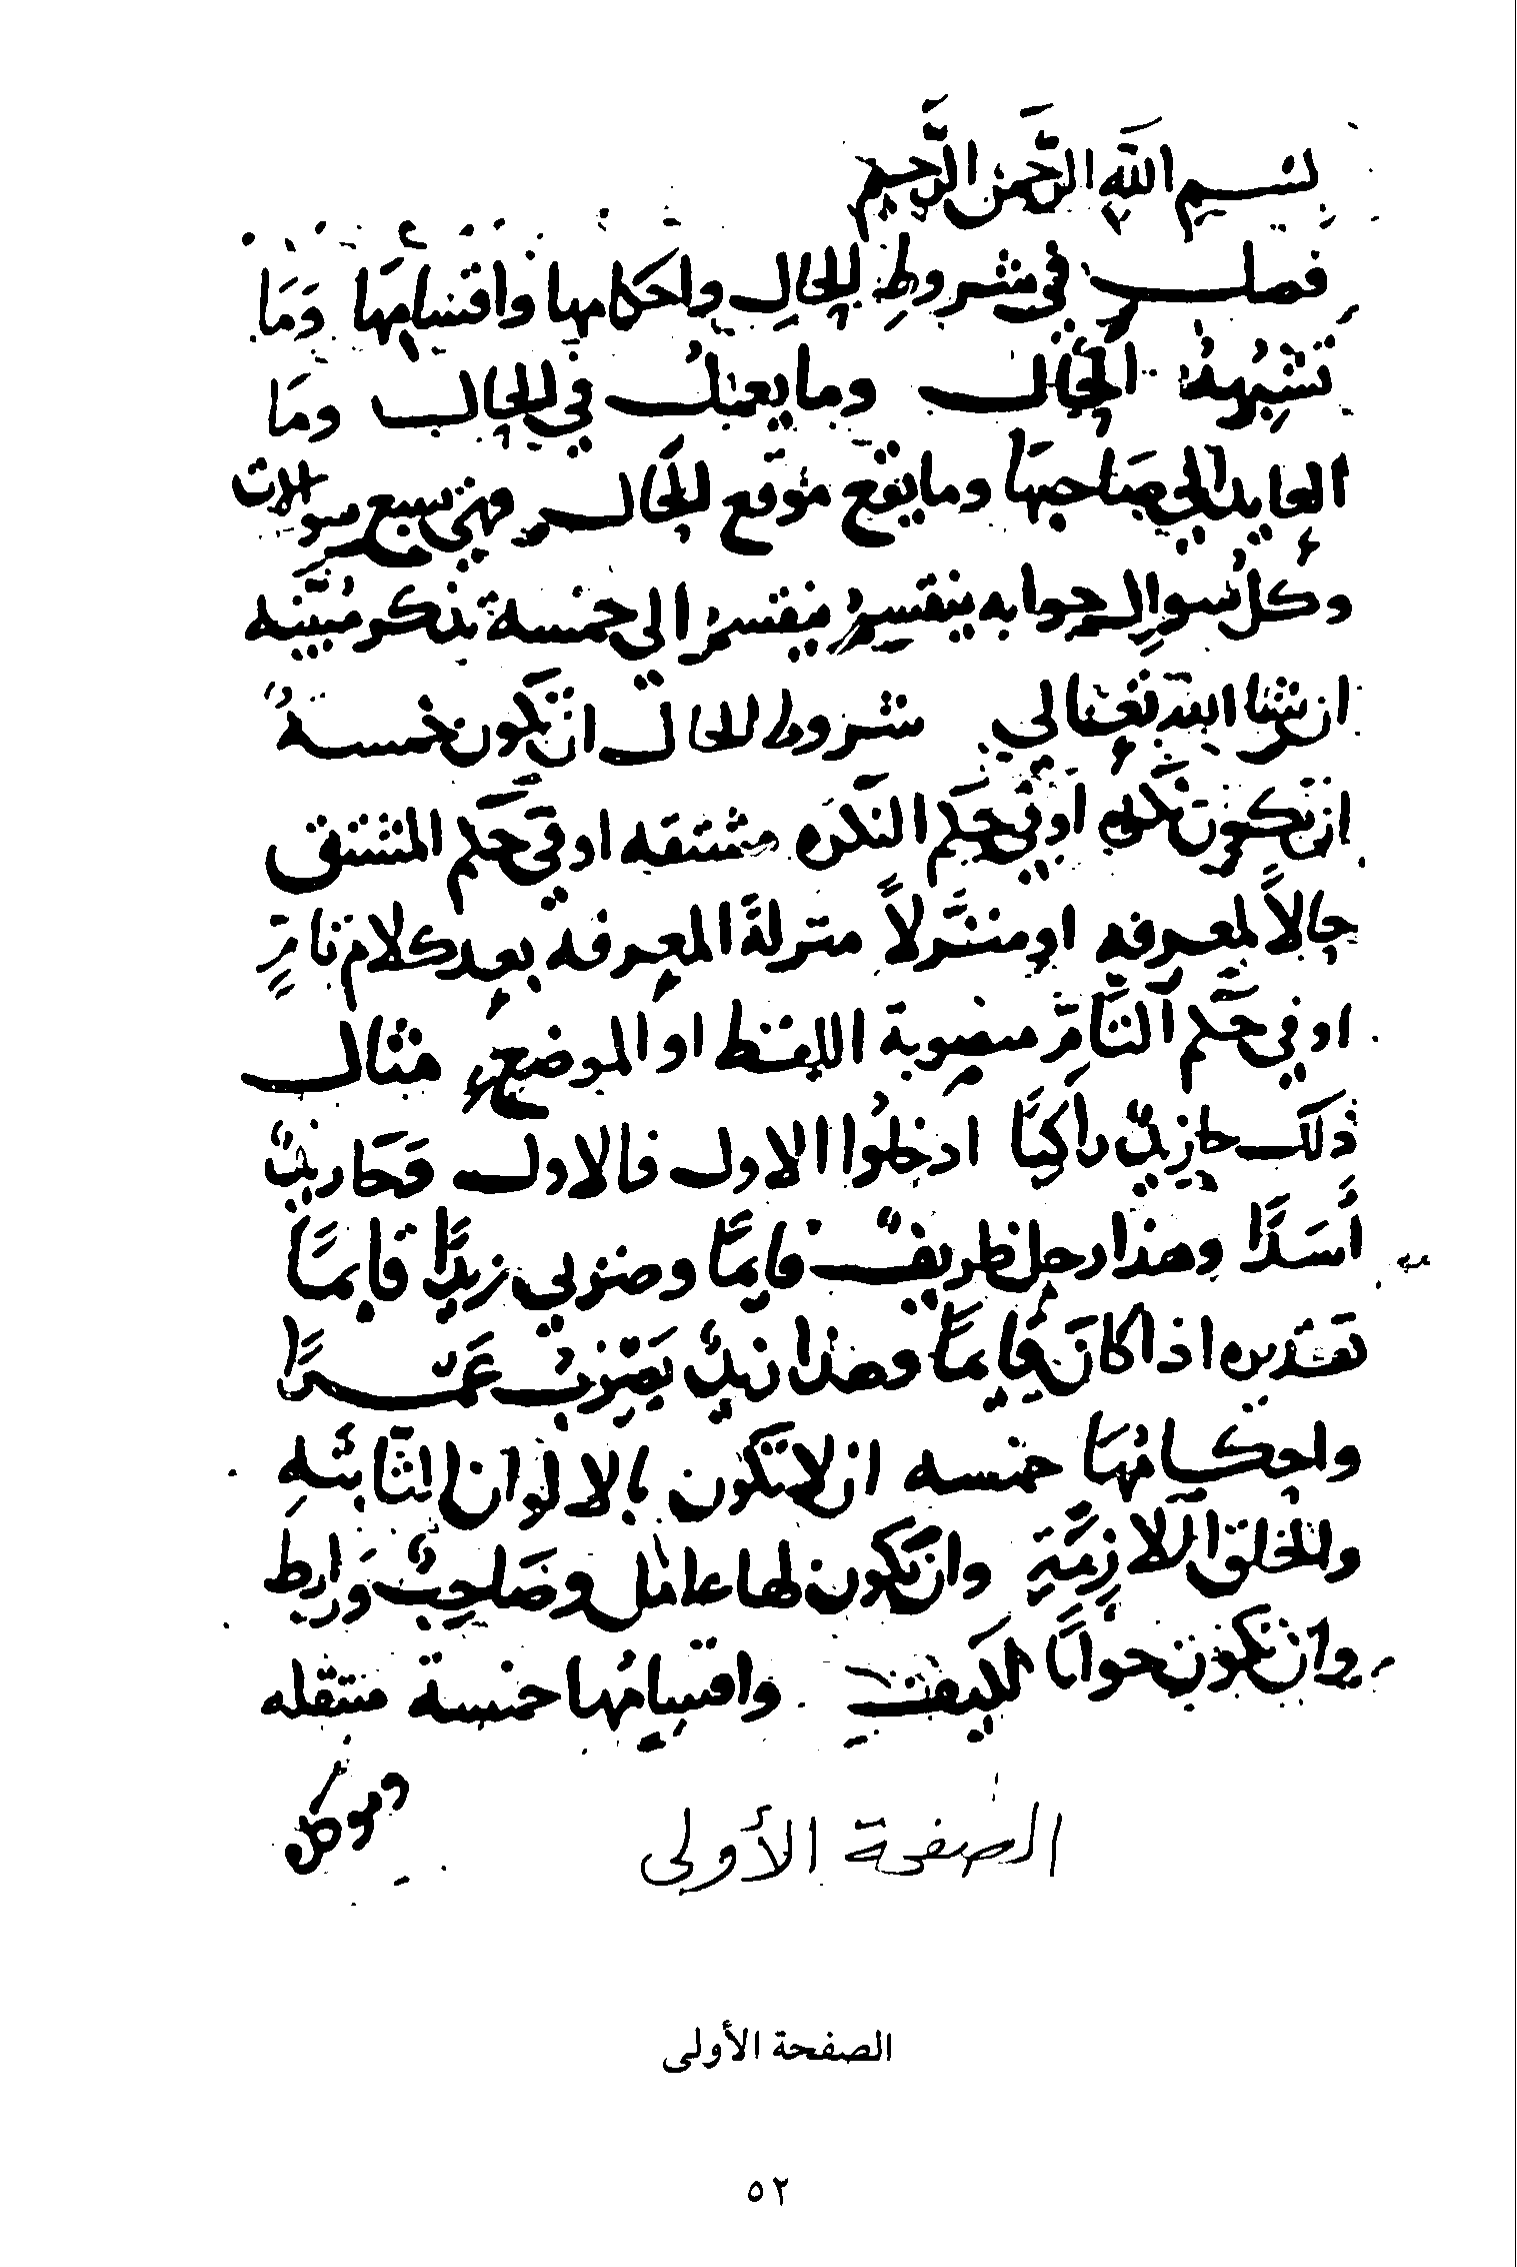 بسم اللَّه الرَّحمن الرَّحيم
فصل في شروطِ الحالِ واحكامها واقسامها وَمَا
تشبههُ الحال وما يعمل في الحال وما
العايد الى صاحبها وما يقع موقع الحال فهي سبع سوالات
وكل سوال جوابه ينقسم ينقسم الى خمسة يذكر مبينه
ان شا الله تعالى شروط الحال ان تكون خمسةً
ان تكون نكره او في حكم النكره مشتقه او في حكم المشتق
حالاً لمعرفه او منزلاً منزلةَ المعرفه بعد كلام تامٍّ
او في حكم التامِّ منصوبة اللفظ او الموضع مثال
ذلك جا زيدٌ راكبًا ادخلُوا الاول فالاول وجا زيدٌ
أسَدًا وهذا رجل ظريفٌ قايمًا وضربي زيدًا قايمًا
تقديره اذا كانَ قايمًا وهذا زيدٌ يضربُ عَمْرًا
واحكامُهَا خمسه ان لا تكون بالالوان الثابتَهِ
والخلق اللازمَةِ وان تكون لها عامل وصَاحبٌ وَرابط
وان تكون جوابًا لكيف واقسامُها خمسة منتقله
وموكده
الصفحة الأولى
الصفحة الأولى
٥٢